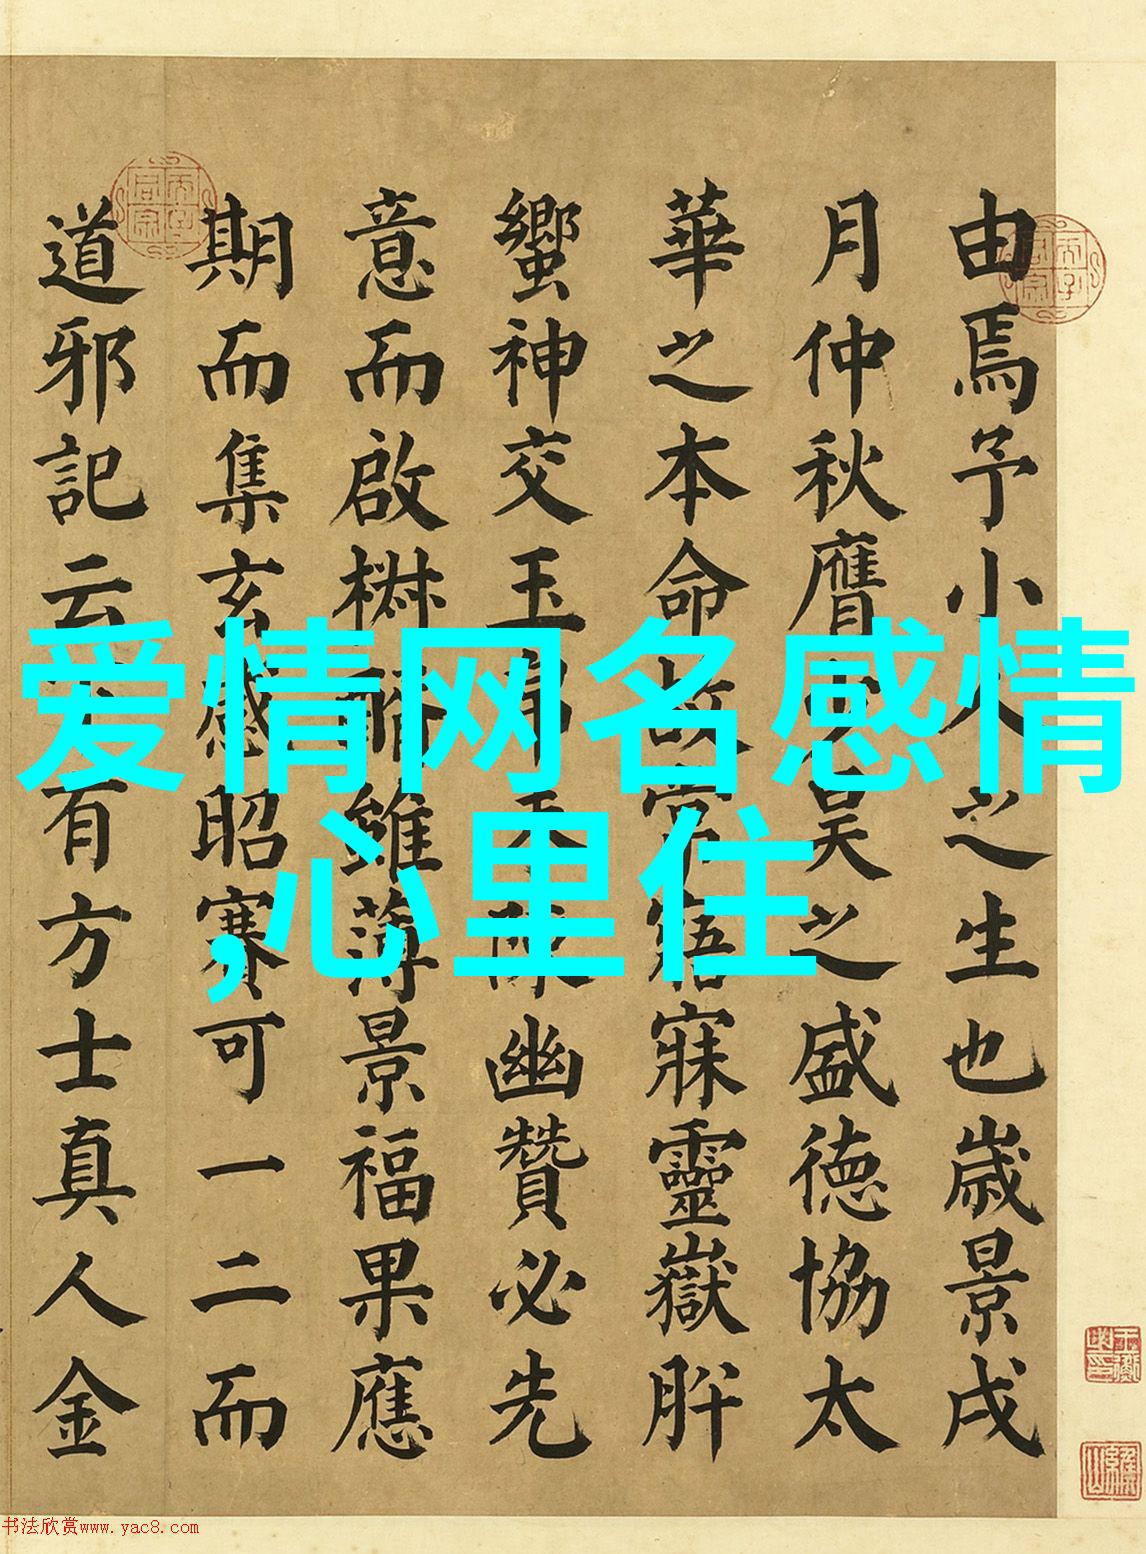 爱情网名感情
,心里住
由焉予小之生也歲景戌
月仲秋膺昊之盛德協太
華之本命故常寤寐靈嶽肸
蠁神交玉帛陳幽贊必先
意而啟雖薄景福果應
期而集玄感昭賽可一二而
道邪記云有方士真人金
书法欣赏www.yac8.com